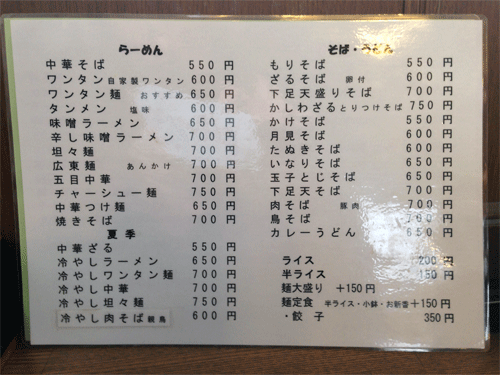 らーめん
中華そば 550円
ワンタン 自家製ワンタン 600円
ワンタン麺 おすすめ 650円
タンメン 塩味 600円
味噌ラーメン 650円
辛し味噌ラーメン 700円
坦々麺 700円
広東麺 あんかけ 700円
五目中華 700円
チャーシュー麺 750円
中華つけ麺 650円
焼きそば 700円
夏季
中華ざる 550円
冷やしラーメン 650円
冷やしワンタン麺 700円
冷やし中華 700円
冷やし坦々麺 750円
冷やし肉そば 親鳥 600円
そば・うどん
もりそば 550円
ざるそば 卵付 600円
下足天盛りそば 700円
かしわざる とりつけそば 750円
かけそば 550円
月見そば 600円
たぬきそば 600円
いなりそば 650円
玉子とじそば 650円
下足天そば 700円
肉そば 豚肉 700円
鳥そば 円
カレーうどん 650円
ライス 200円
半ライス 150円
麺大盛り +150円
麺定食 半ライス・小鉢・お新香 +150円
・餃子 350円